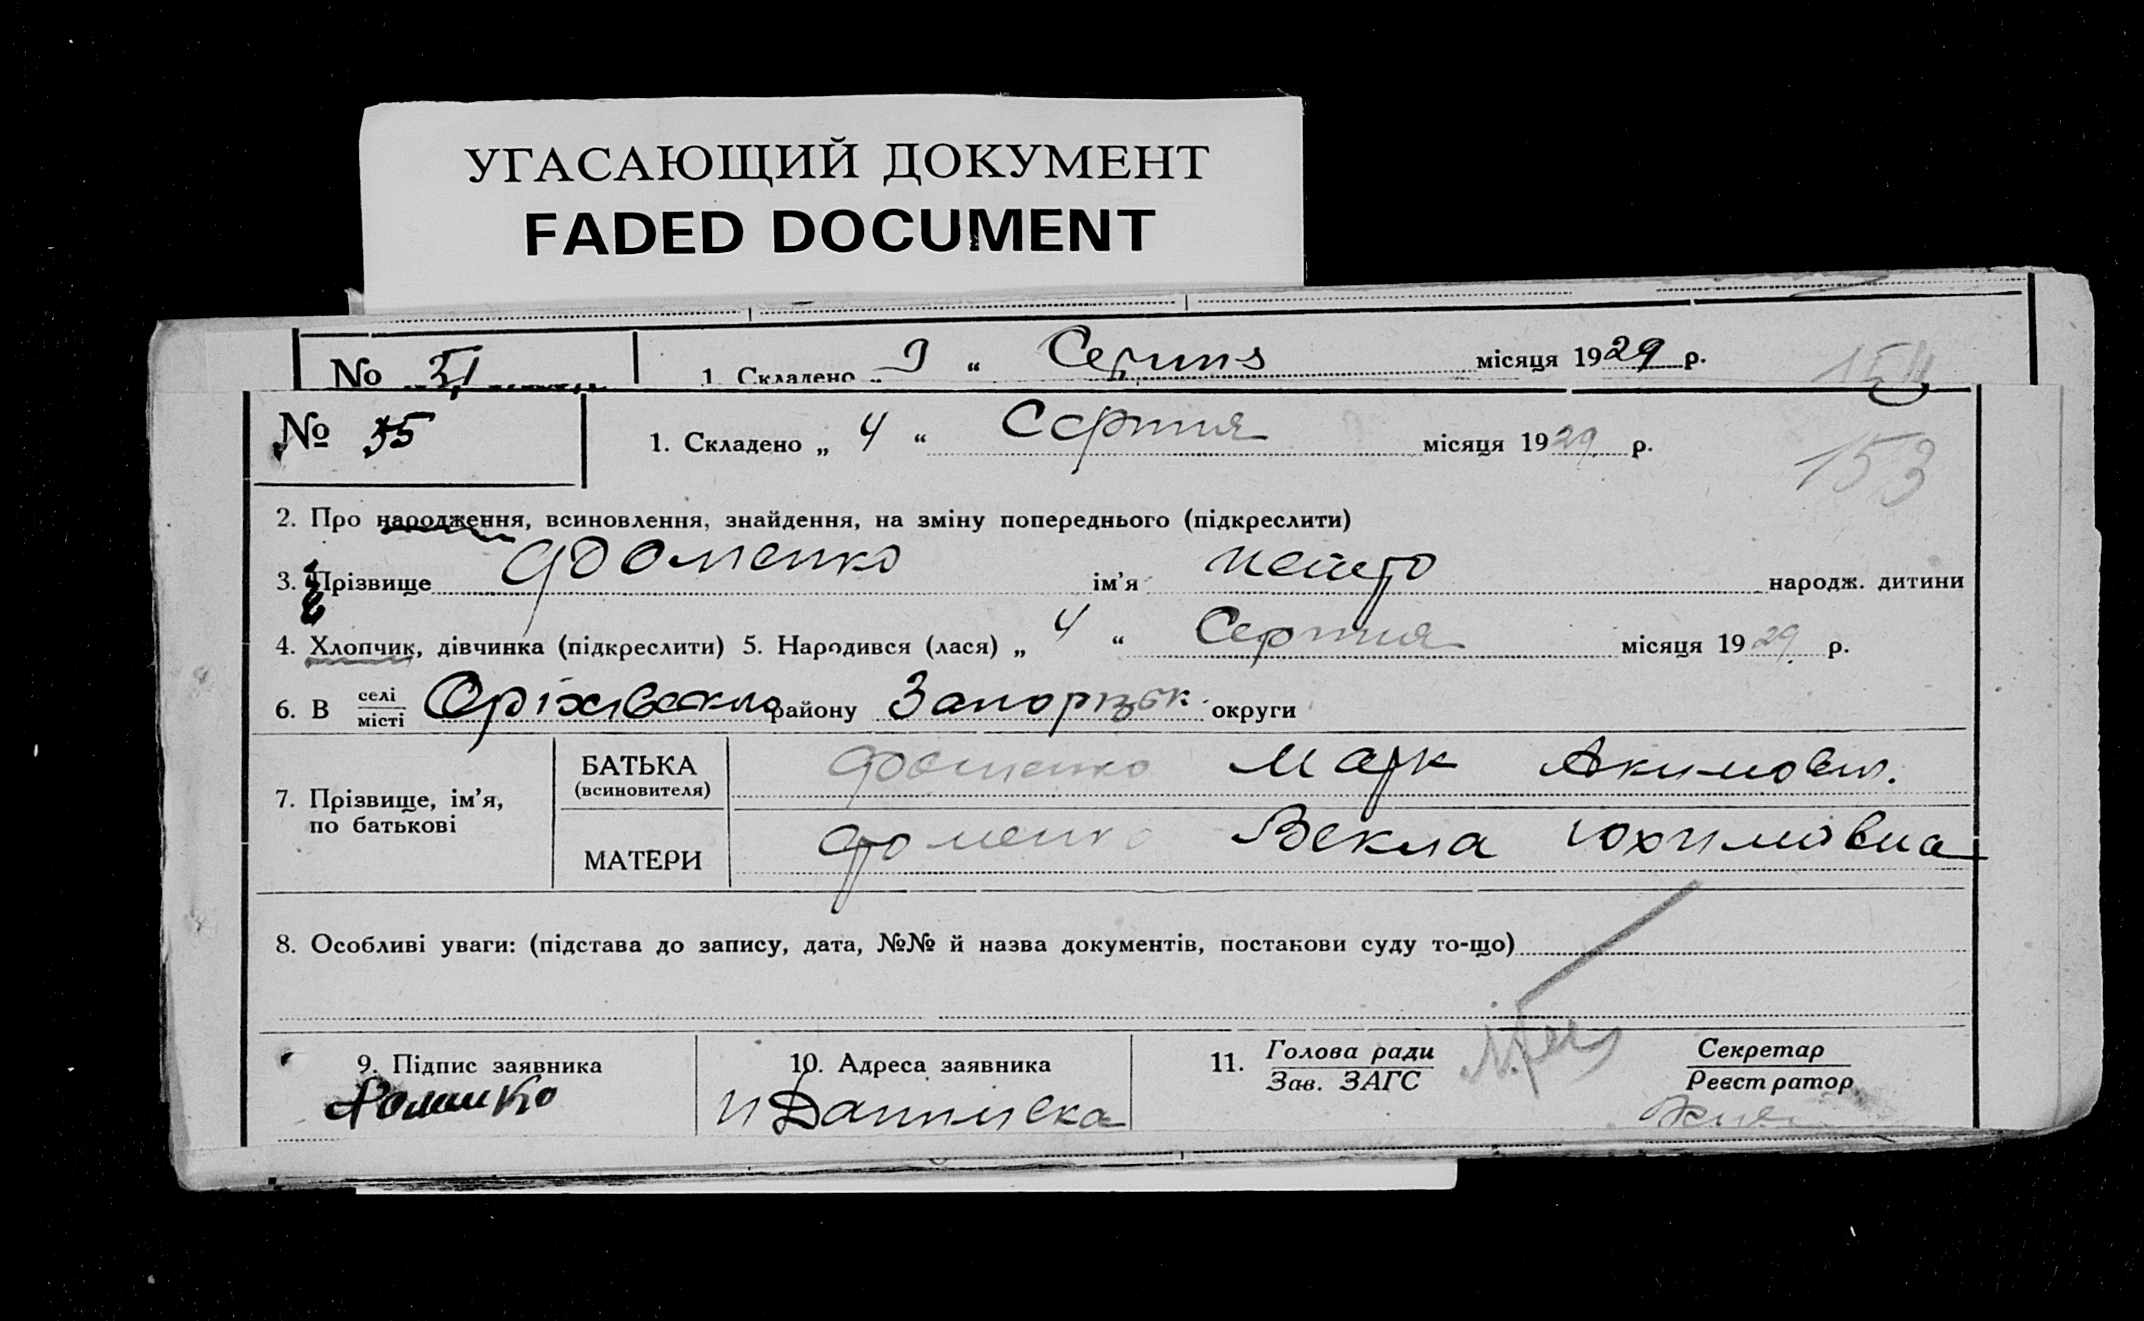 УГАСАЮЩИЙ ДОКУМЕНТ
FADED DOCUMENT
№ 51 1. Складено „ 3 “ Серпня місяця 1929 р.
154
№ 55 1. Складено „ 4 “ Серпня місяця 1929 р.
153
2. Про народження, всиновлення, знайдення, на зміну попереднього (підкреслити)
3. Прізвище Фоменко ім’я народж. дитини
4. Хлопчик, дівчинка (підкреслити) 5. Народився (лася) „ 4 “ Серпня місяця 1929 р.
6. В селі місті Оріхівського району Запорізьк округи
7. Прізвище, ім’я, по батькові
БАТЬКА (всиновителя) Фоменко Марк Акимович.
МАТЕРИ Фоменко Векла Юхимовна
8. Особливі уваги: (підстава до запису, дата, №№ й назва документів, постанови суду то-що)
9. Підпис заявника 10. Адреса заявника 11. Голова ради Зав. ЗАГС Секретар Реєстратор